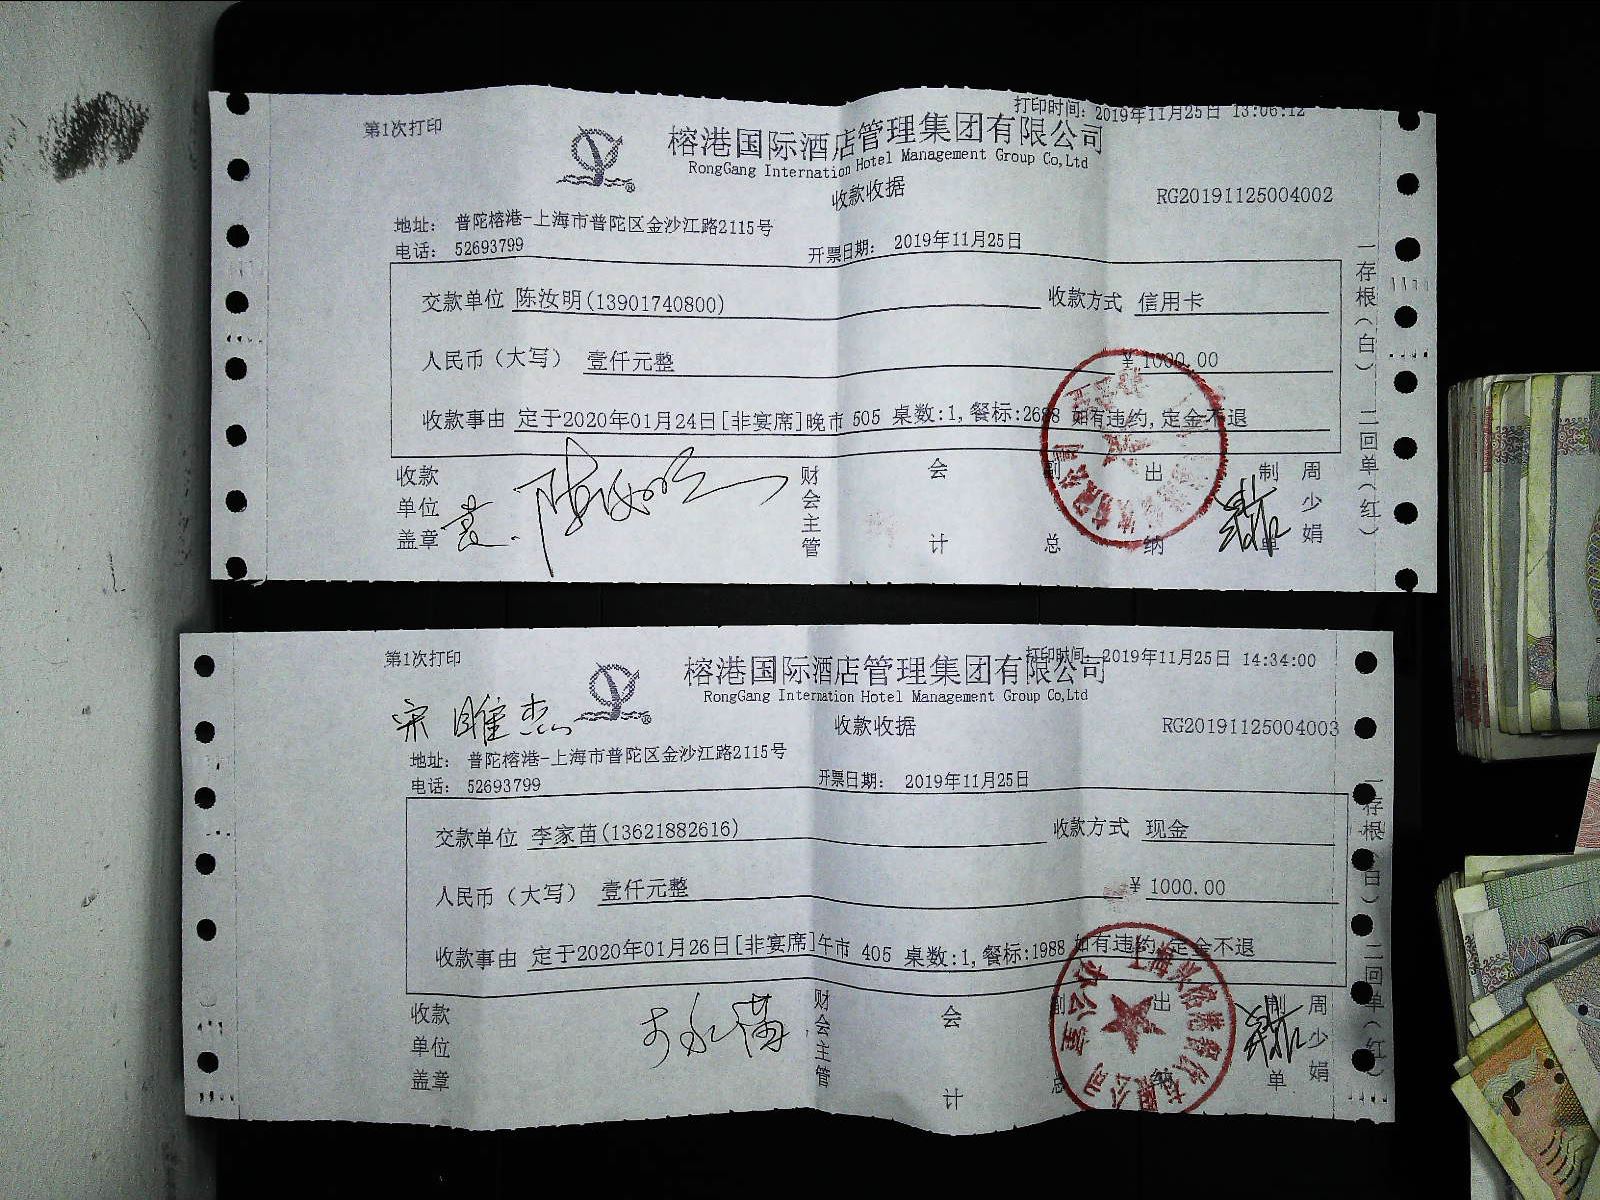 打印时间: 2019年11月25日 13:06:12
第1次打印
榕港国际酒店管理集团有限公司
RongGang Internation Hotel Management Group Co,Ltd
收款收据
RG20191125004002
地址: 普陀榕港-上海市普陀区金沙江路2115号
电话: 52693799
开票日期: 2019年11月25日
交款单位 陈汝明(13901740800) 收款方式 信用卡
人民币(大写) 壹仟元整 ¥ 1000.00
收款事由 定于2020年01月24日[非宴席]晚市 505 桌数:1, 餐标:2688 如有违约, 定金不退
收款单位盖章 陈汝明 财会主管 会计 副总 出纳 制单 周少娟
一存根(白) 二回单(红)
打印时间: 2019年11月25日 14:34:00
第1次打印
榕港国际酒店管理集团有限公司
RongGang Internation Hotel Management Group Co,Ltd
收款收据
RG20191125004003
地址: 普陀榕港-上海市普陀区金沙江路2115号
电话: 52693799
开票日期: 2019年11月25日
交款单位 李家苗(13621882616) 收款方式 现金
人民币(大写) 壹仟元整 ¥ 1000.00
收款事由 定于2020年01月26日[非宴席]午市 405 桌数:1, 餐标:1988 如有违约, 定金不退
收款单位盖章 财会主管 会计 副总 出纳 制单 周少娟
一存根(白) 二回单(红)